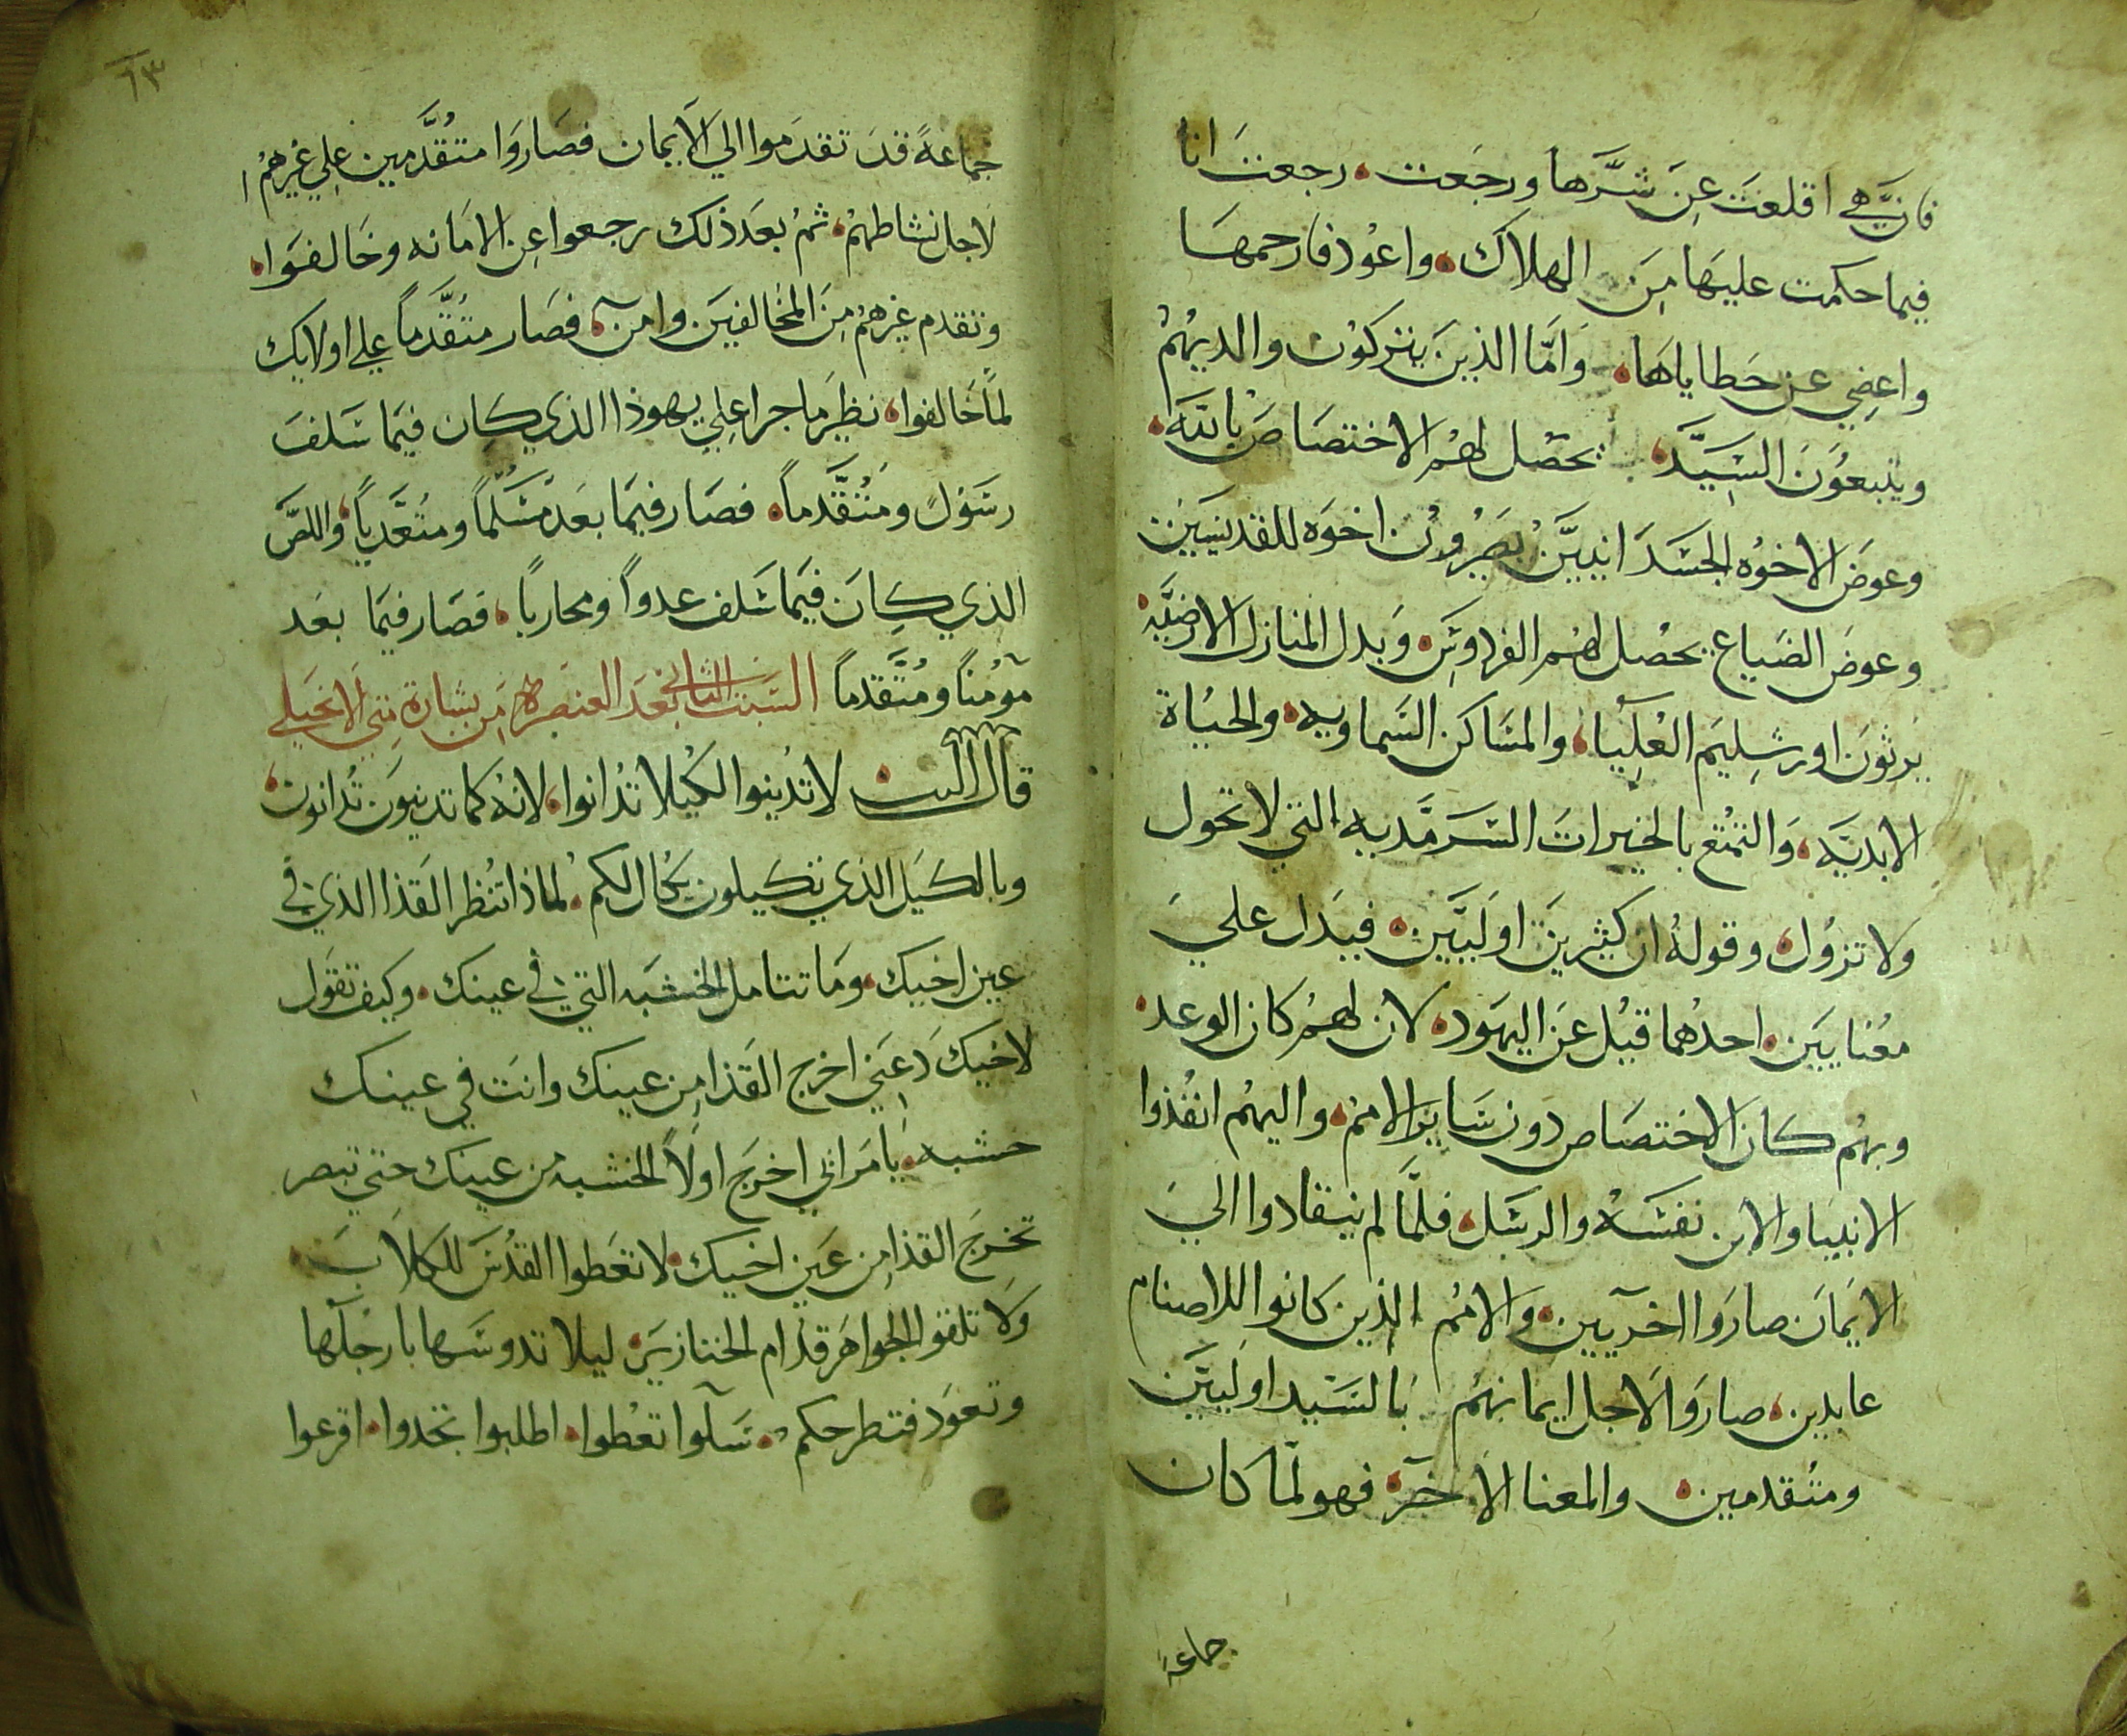 فان هي اقلعت عن شرها ورجعت. رجعت انا
فيما حكمت عليها من الهلاك. واعود فارحمها
واعضي عن خطاياها. واما الذين يتركون والديهم
ويتبعون السيد. يحصل لهم الاختصاص بالله.
وعوض الاخوه الجسدانيين يصيرون اخوه للقديسين
وعوض الضياع يحصل لهم الفردوس. وبدل المنازل الارضيه.
يرثون اورشليم العليا. والمساكن السماويه. والحياة
الابديه. والتمتع بالخيرات السرمديه التي لا تحول
ولا تزول. وقوله ان كثيرين اوليين. فيدل علي
معنايين. احدهما قيل عن اليهود. لان لهم كان الوعد.
وبهم كان الاختصاص دون ساير الامم. واليهم انفذوا
الانبيا والابن نفسه والرسل. فلما لم ينقادوا الي
الايمان صاروا اخريين. والامم الذين كانوا للاصنام
عابدين. صاروا لاجل ايمانهم بالسيد اوليين
ومتقدمين. والمعنا الاخر. فهو لما كان
جماعة
٦٣
جماعةً قد تقدموا الي الايمان فصاروا متقدمين علي غيرهم
لاجل نشاطهم. ثم بعد ذلك رجعوا عن الامانه وخالفوا.
وتقدم غيرهم من المخالفين وامن. فصار متقدماً علي اولايك
لما خالفوا. نظير ما جرا علي يهوذا الذي كان فيما سلف
رسولً ومتقدماً. فصار فيما بعد مسلماً ومتعدياً. واللص
الذي كان فيما سلف عدواً ومحارباً. فصار فيما بعد
مومناً ومتقدماً السبت الثاني بعد العنصره من بشارة متي الانجيلي
قال الرب. لا تدينوا لكيلا تدانوا. لانه كما تدينون تدانون.
وبالكيل الذي تكيلون يكال لكم. لماذا تنظر القذا الذي في
عين اخيك. وما تتامل الخشبه التي في عينك. وكيف تقول
لاخيك دعني اخرج القذا من عينك وانت في عينك
خشبه. يا مراي اخرج اولاً الخشبه من عينك حتي تبصر
تخرج القذا من عين اخيك. لا تعطوا القدس للكلاب
ولا تلقوا الجواهر قدام الخنازير. ليلا تدوسها بارجلها
وتعود فتطرحكم. سلوا تعطوا. اطلبوا تجدوا. اقرعوا